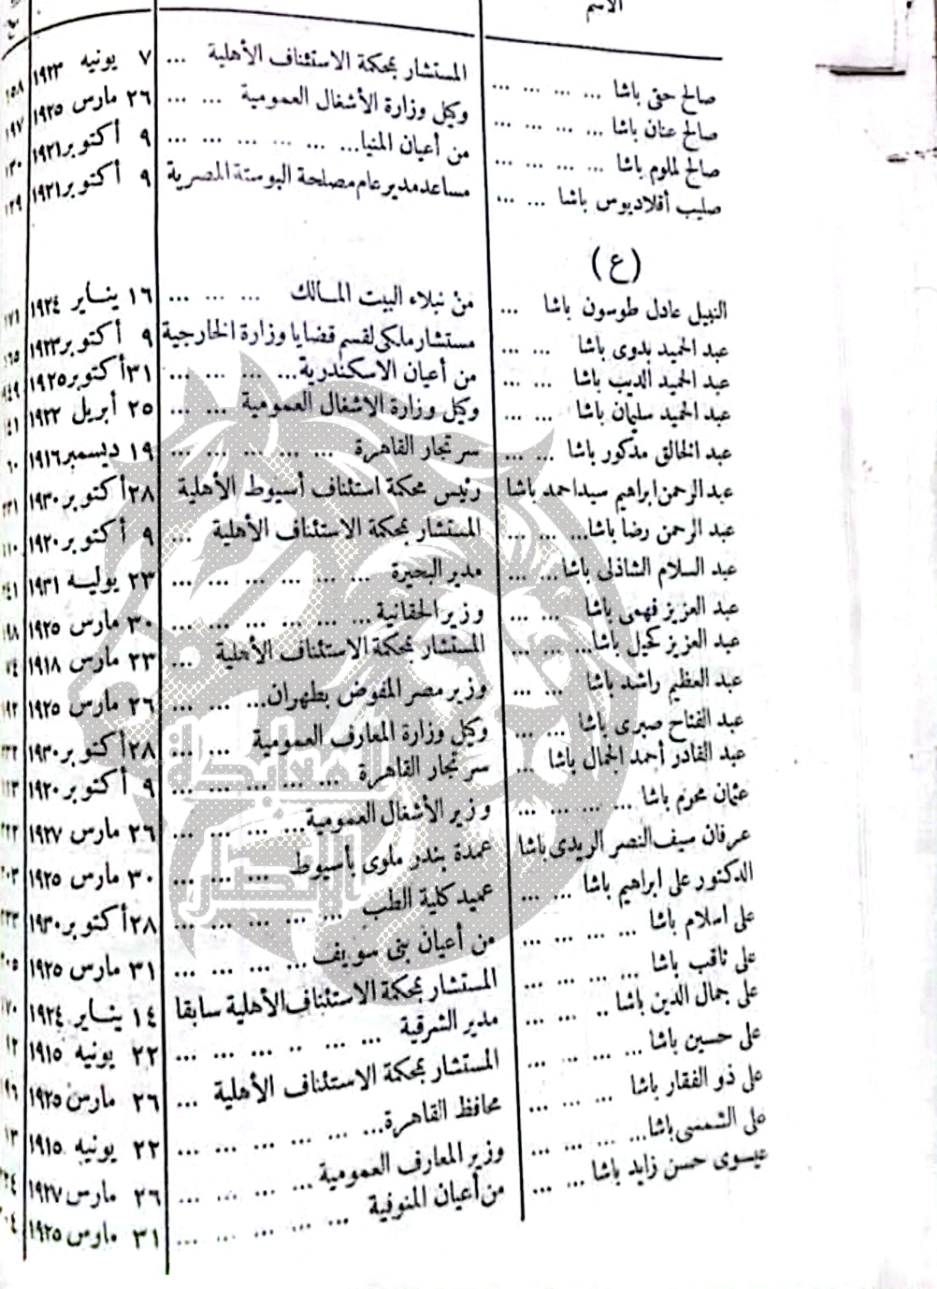 الاسم
صالح حقي باشا ... ... ... ... المستشار بمحكمة الاستئناف الأهلية ... ٧ يونيه ١٩٢٣ ١٥٨
صالح عنان باشا ... ... ... ... وكيل وزارة الأشغال العمومية ... ... ٢٦ مارس ١٩٢٥ ١٩٧
صالح لملوم باشا ... ... ... ... من أعيان المنيا ... ... ... ... ... ... ٩ أكتوبر ١٩٢١ ١٣٠
صليب أقلاديوس باشا ... ... مساعد مدير عام مصلحة البوستة المصرية ٩ أكتوبر ١٩٢١ ١٢٩
(ع)
النبيل عادل طوسون باشا ... من نبلاء البيت المالك ... ... ... ١٦ ينـاير ١٩٢٤ ١٧١
عبد الحميد بدوى باشا ... ... مستشار ملكى لقسم قضايا وزارة الخارجية ٩ أكتوبر ١٩٢٣
عبد الحميد الديب باشا ... ... من أعيان الاسكندرية ... ... ... ... ٣١ أكتوبر ١٩٢٥
عبد الحميد سليمان باشا ... ... وكيل وزارة الاشغال العمومية ... ... ٢٥ أبريل ١٩٢٢
عبد الخالق مدكور باشا ... ... سر تجار القاهرة ... ... ... ... ... ١٩ ديسمبر ١٩١٦
عبد الرحمن ابراهيم سيد احمد باشا رئيس محكمة استئناف أسيوط الأهلية ٢٨ أكتوبر ١٩٣٠
عبد الرحمن رضا باشا ... ... ... المستشار بمحكمة الاستئناف الأهلية ... ٩ أكتوبر ١٩٢٠
عبد السلام الشاذلى باشا ... ... مدير البحيرة ... ... ... ... ... ... ٢٣ يوليـه ١٩٣١
عبد العزيز فهمى باشا ... ... وزير الحقانية ... ... ... ... ... ... ٣٠ مارس ١٩٢٥
عبد العزيز كحيل باشا ... ... ... المستشار بمحكمة الاستئناف الأهلية ... ٢٣ مارس ١٩١٨
عبد العظيم راشد باشا ... ... وزير مصر المفوض بطهران ... ... ... ٢٦ مارس ١٩٢٥
عبد الفتاح صبرى باشا ... ... وكيل وزارة المعارف العمومية ... ... ٢٨ أكتوبر ١٩٣٠
عبد القادر أحمد الجمال باشا ... سر تجار القاهرة ... ... ... ... ... ٩ أكتوبر ١٩٢٠
عثمان محرم باشا ... ... ... ... وزير الأشغال العمومية ... ... ... ... ٢٦ مارس ١٩٢٧
عرفان سيف النصر الريدى باشا عمدة بندر ملوى بأسيوط ... ... ... ٣٠ مارس ١٩٢٥
الدكتور على ابراهيم باشا ... ... عميد كلية الطب ... ... ... ... ... ٢٨ أكتوبر ١٩٣٠
على اسلام باشا ... ... ... ... من أعيان بنى سويف ... ... ... ... ٣١ مارس ١٩٢٥
على ثاقب باشا ... ... ... ... المستشار بمحكمة الاستئناف الأهلية سابقا ١٤ ينـاير ١٩٢٤
على جمال الدين باشا .. ... ... مدير الشرقية ... ... ... .. ... ... ٢٢ يونيه ١٩١٥
على حسين باشا ... ... ... ... المستشار بمحكمة الاستئناف الأهلية ... ٢٦ مارس ١٩٢٥
على ذو الفقار باشا ... ... ... محافظ القاهرة ... ... ... ... ... ... ٢٢ يونيه ١٩١٥
على الشمسى باشا ... ... ... ... وزير المعارف العمومية ... ... ... ... ٢٦ مارس ١٩٢٧
عيسوى حسن زايد باشا ... ... من أعيان المنوفية ... ... ... ... ... ٣١ مارس ١٩٢٥